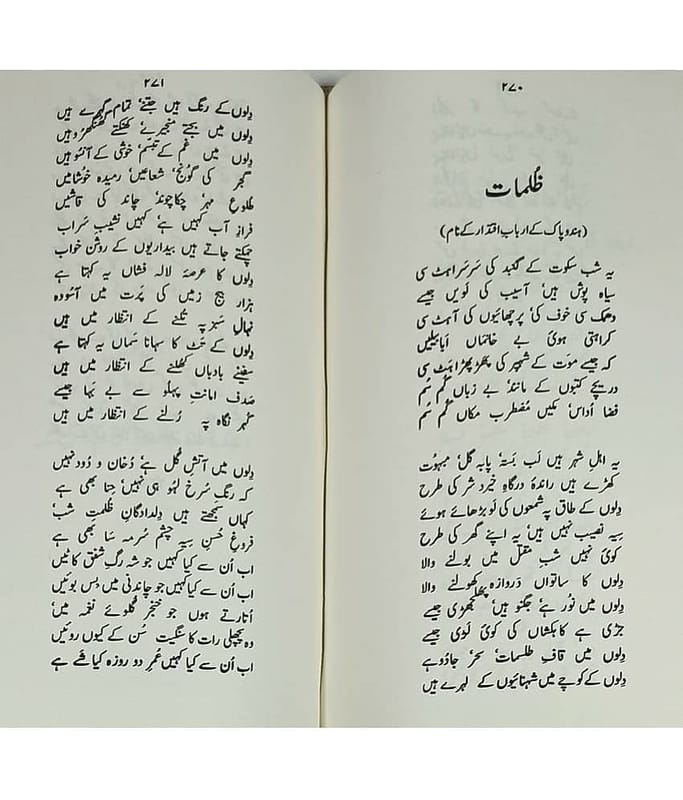 ۲۷۰
ظُلمات
(ہند و پاک کے اربابِ اقتدار کے نام)
یہ شب سکوت کے گنبد کی سَرسَراہٹ سی
سیاہ پوش ہیں' آسیب کی لَویں جیسے
دھمک سی خوف کی' پرچھائیوں کی آہٹ سی
کراہتی ہوئی بے خانماں اَبابیلیں
کہ جیسے موت کے شہپر کی پھڑپھڑاہٹ سی
دریچے کتبوں کے مانند' بے زباں گُم سُم
فضا اُداس' مکیں مُضطرب مکاں گُم سُم
یہ اہلِ شہر ہیں لَب بَستہ' پابہ گل' مبہُوت
کھڑے ہیں راندۂ درگاہِ خیرد شر کی طرح
دِلوں کے طاق پہ شمعوں کی لَو بڑھائے ہوئے
یہ نصیب نہیں ہیں' یہ اپنے گھر کی طرح
کوئی نہیں شبِ مقتل میں بولنے والا
دِلوں کا ساتواں دَروازہ کھولنے والا
دِلوں میں نُور ہے' جگنو ہیں' پُھلجھڑی جیسے
جڑی ہے کاہکشاں کی کوئی لَوی جیسے
دِلوں میں قافِ طلسمات' سحر' جادو ہے
دِلوں کے کوچے میں شہنائیوں کے لہرے ہیں
۲۷۱
دِلوں کے رنگ ہیں جتنے' تمام گہرے ہیں
دِلوں میں بجتے' منجیرے' کھنکتے گھنگھرو ہیں
دِلوں میں غم کے تبسّم' خوشی کے آنسو ہیں
گجر کی گونج' شعاعیں' رمیدہ خوُشامیں
طلوعِ مہر' چکاچوند' چاند کی قاشیں
فرازِ آب کہیں ہے' کہیں نشیبِ سَراب
چمکتے جاتے ہیں بیداریوں کے روشن خواب
دِلوں کا عرصۂ لالہ فشاں یہ کہتا ہے
ہزار بیج زمیں کی پَرت میں آسُودہ
نہالِ سَبز پہ تکنے کے انتظار میں ہیں
دِلوں کے تَٹ کا سہانا سَماں یہ کہتا ہے
سفینے بادباں کُھلنے کے انتظار میں ہیں
صدف امانتِ پہلو سے بے بہا جیسے
گہر نگاہ پہ رُلنے کے انتظار میں ہیں
دِلوں میں آتشِ گُل ہے' دُخان و دُود نہیں
کہ رنگِ سُرخ لہُو ہی نہیں' حِنا بھی ہے
کہاں سمجھتے ہیں دِلدادگانِ ظلمتِ شب'
فروغِ حُسنِ سیہ چشمِ سُرمہ سا بھی ہے
اب اُن سے کیا کہیں جو شہ رگِ شفق کاٹیں
اب اُن سے کیا کہیں جو چاندنی میں بِس بوئیں
اُتارتے ہوں جو خنجر گُلوئے نغمہ میں'
وہ پچھلی رات کا سنگیت سُن کے کیوں روئیں
اب اُن سے کیا کہیں عُمرِ دو روزہ کیا شے ہے